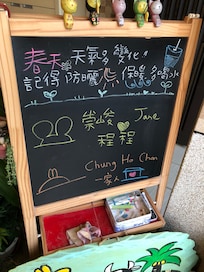 春天 天氣多變化"
記得 防曬 保濕 多喝水
崇峻 Jane
程程
Chung Ho Chan
一家人